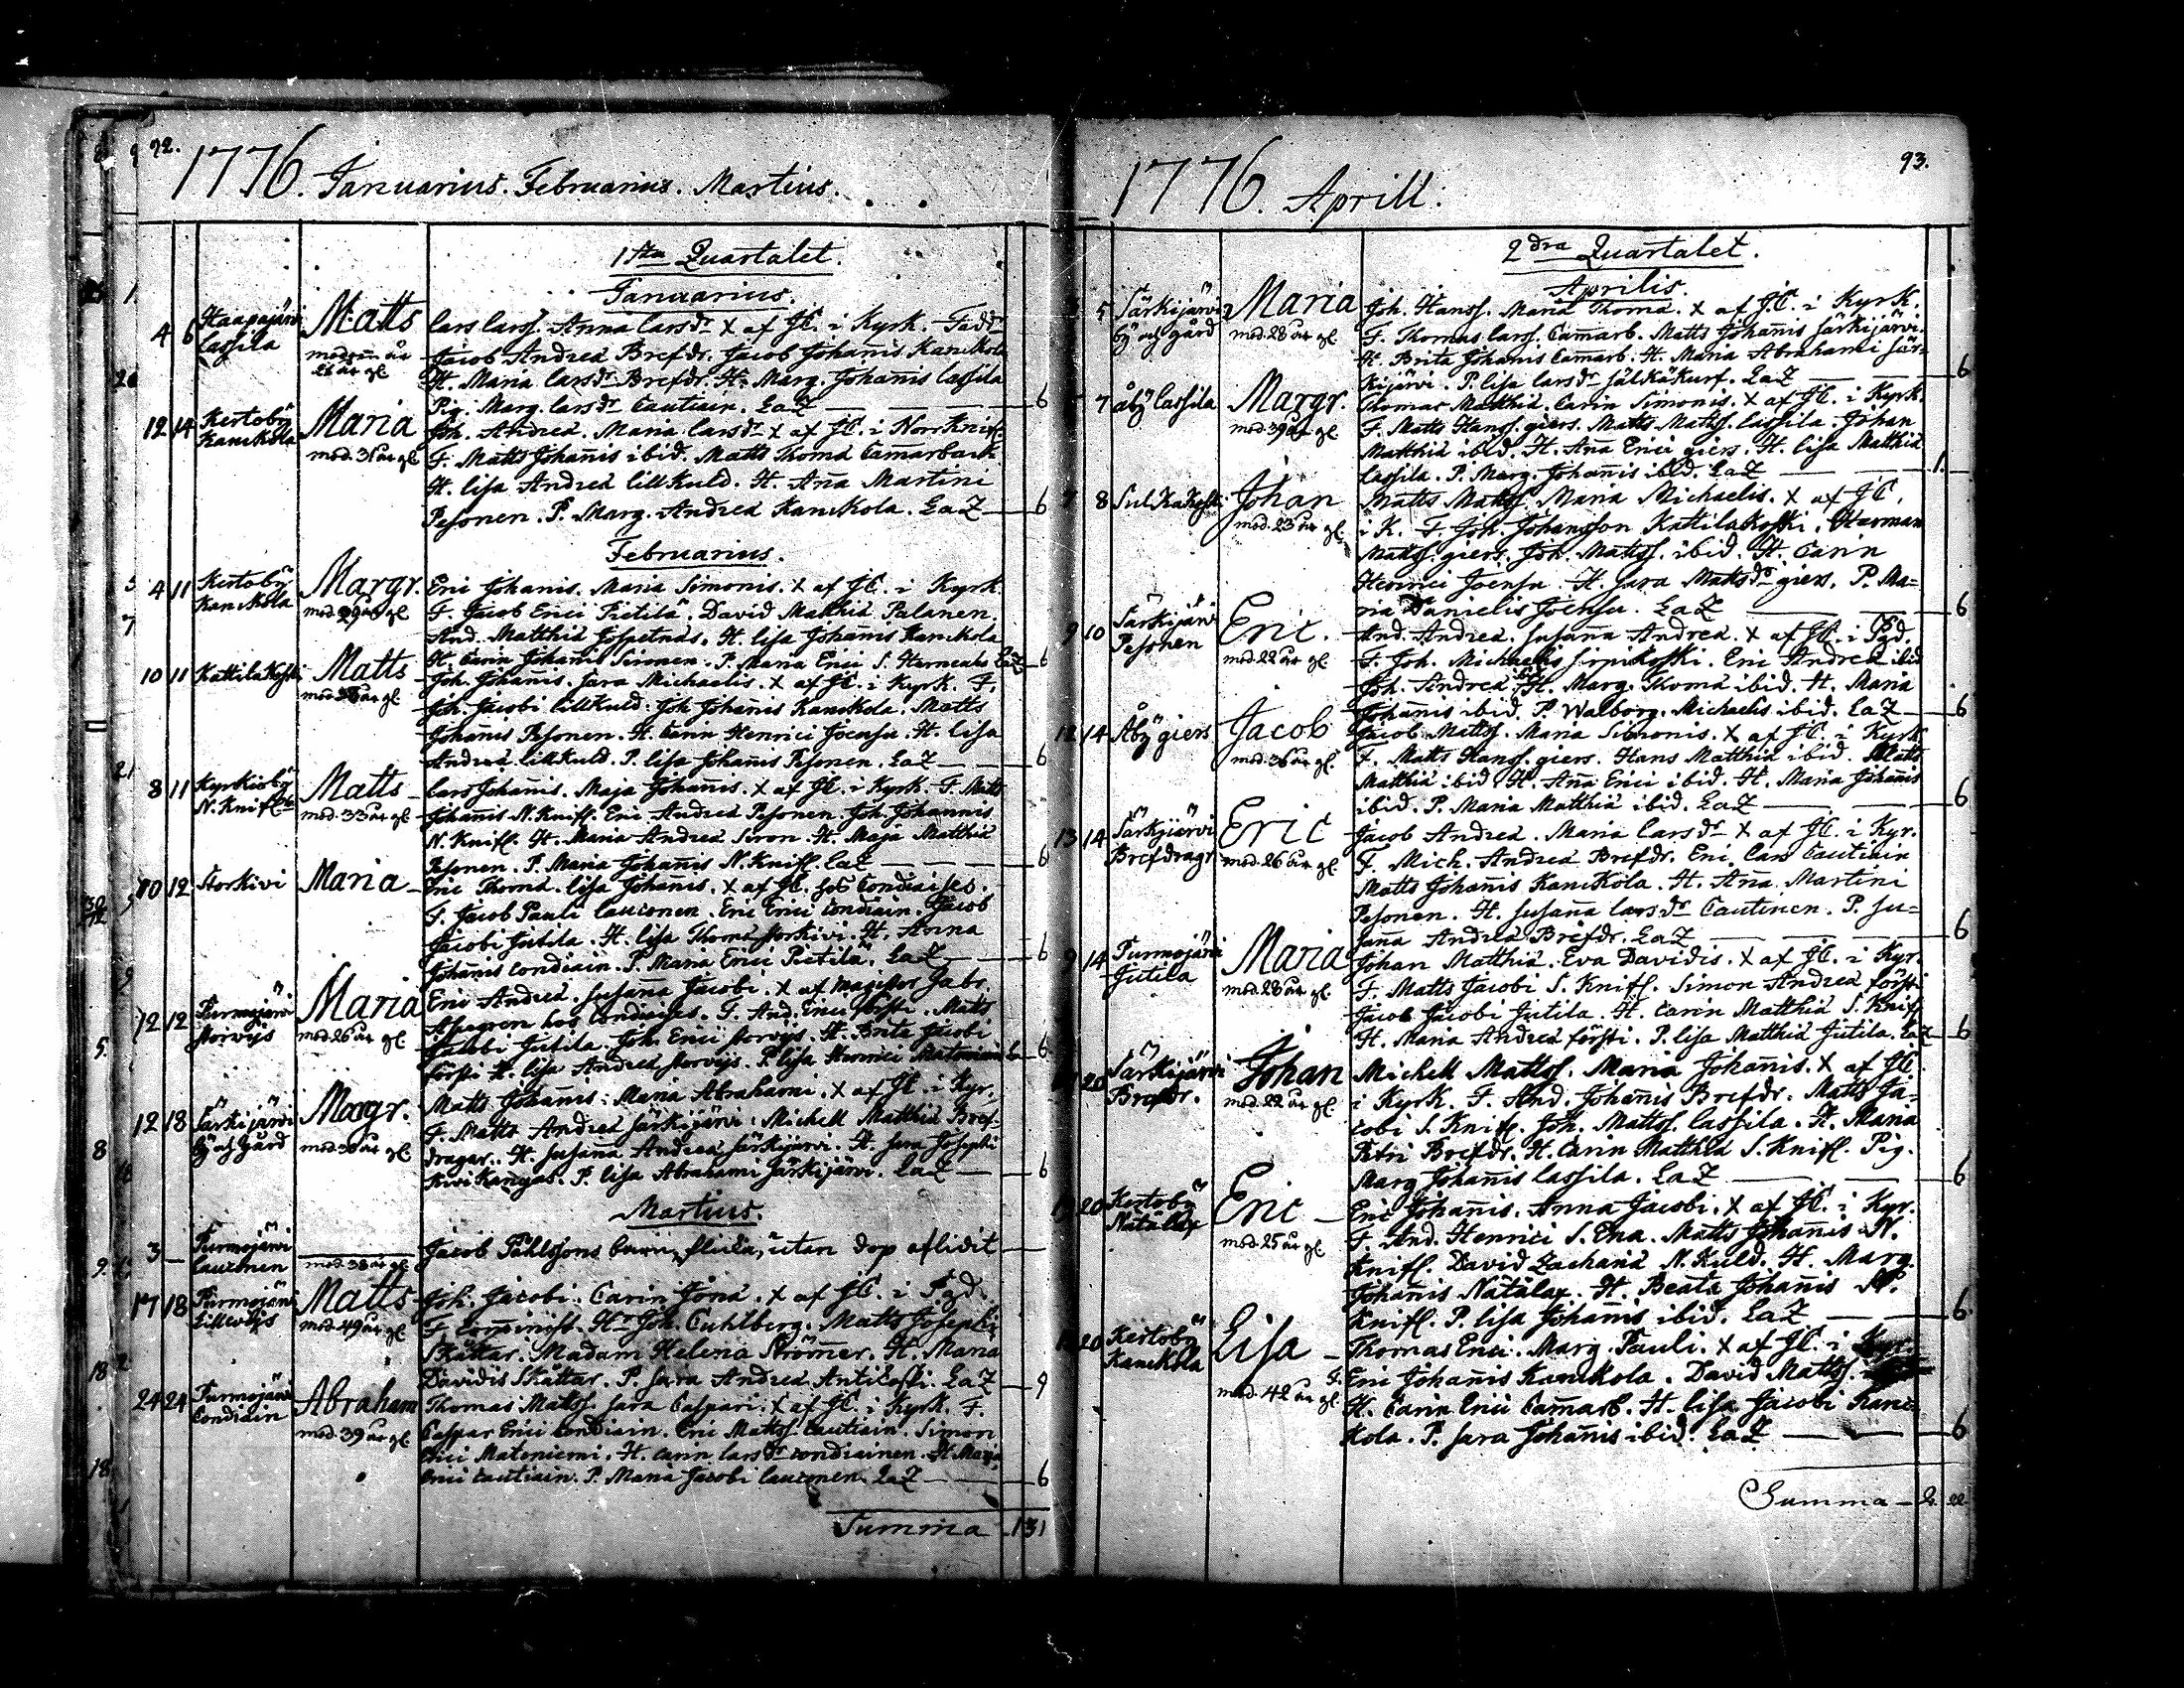 92.
1776. Januarius. Februarius. Martius.
1sta Quartalet.
Januarius.
4 6 Haapajärvi Lassila
Matts
26 år gl.
Lars Larss. Anna Larsdr x af JC. i Kyrk. Fadd
Jacob Andreæ Brefdr. Jacob Johanis Kanckola
H. Maria Larsdr Brefdr. H. Marg. Johanis Lassila
Pig. Marg. Larsdr Cautiain. LaZ 6
12 14 Kertoby Kanckola
Maria
mod. 31 år gl.
Joh. Andreæ. Maria Larsdr x af JC. i Norr Knifl.
F. Matts Johanis ibid. Matts Thomæ Camarback
H. Lisa Andreæ Lillkuld. H. Aña Martini
Pesonen. P. Marg. Andreæ Kanckola. LaZ 6
Februarius.
4 11 Kertoby Kanckola
Margr.
mod. 29 år gl.
Erici Johanis. Maria Simonis. x af JC. i Kyrk.
F. Jacob Erici Pietilä. David Matthiæ Palanen.
And. Matthiæ H. Lisa Johanis Kanckola
H. Carin Johanis Sironen. P. Maria Erici S. LaZ 6
10 11 Kattilakoski
Matts
mod. 28 år gl.
Joh. Johanis. Sara Michaelis. x af JC. i Kyrk. F.
Joh. Jacobi Lillkuld. Joh Johanis Kanckola. Matts
Johanis Pesonen. H. Carin Henrici Joensu. H. Lisa
Andreæ Lillkuld. P. Lisa Johanis Pesonen. LaZ 6
8 11 Kyrkioby N. Knifl.
Matts
mod. 33 år gl.
Lars Johanis. Maja Johanis. x af JC. i Kyrk. F. Matts
Johanis N. Knifl. Eric Andreæ Pesonen. Joh. Johannis
N. Knifl. H. Maria Andreæ Siron. H. Maja Matthiæ
Pesonen. P. Maria Johanis N. Knifl. LaZ 6
10 12 Storkivi
Maria
Eric Thomæ. Lisa Johanis. x af JC. hos Condiaises.
F. Jacob Pauli Lauronen. Eric Erici Condiain. Jacob
Jacobi Jutila. H. Lisa Thomæ Storkivi. H. Anna
Johanis Condiain. P. Maria Erici Pietilä. LaZ 6
12 12 Purmojärvi Storvijs
Maria
mod. 26 år gl.
Eric Andreæ. Susana Jacobi. x af Magister Gabr.
hos Condiaises. F. And. Erici Försti. Matts
Jacobi Jutila. Joh. Erici Storvijs. H. Brita Jacobi
Försti H. Lisa Andreæ Storvijs. P. Lisa Henrici 6
12 18 Särkijärvi by och gård
Margr.
mod. 38 år gl.
Matts Johanis. Maria Abrahami. x af JC. i Kyr.
F. Matts Andreæ Särkijärvi. Michell Matthiæ Bref-
dragar. H. Susana Andreæ Särkijärvi. H. Sara Josephi
Kivikangas. P. Lisa Abrahami Särkijärvi. LaZ 6
Martius.
3 — Purmojärvi Lauronen
mod. 38 år gl.
Jacob Påhlssons barn, flicka, utan dop aflidit
17 18 Purmojärvi Lillvijs
Matts
mod. 49 år gl.
Joh. Jacobi. Carin Jonæ. x af JC. i Pgd.
F. Hr Joh. Cuhlberg. Matts Josephi
Skåttar. Madam Helena Strömer. H. Maria
Davidis Skåttar. P. Sara Andreæ Antikoski. LaZ 9
24 24 Purmojärvi Condiain
Abraham
mod. 39 år gl.
Thomas Matts. Sara Caspari. x af JC. i Kyrk. F.
Caspar Erici Condiain. Eric Mattss. Cautiain. Simon
Erici Matoniemi. H. Carin Larsdr Condiainen. H. Maria
Erici Cautiain. P. Maria Jacobi Lauronen. LaZ 6
Summa 1 31
93.
1776. Aprill.
2dra Quartalet.
Aprilis.
5 Särkijärvi by och gård
Maria
mod. 28 år gl.
Joh. Hanss. Maria Thomæ. x af JC. i Kyrk.
F. Thomas Larss. Camarb. Matts Johanis Särkijärvi.
H. Brita Johanis Camarb. H. Maria Abrahami Sär-
kijärvi. P. Lisa Larsdr LaZ 6
7 Åby Lassila
Margr.
mod. 39 år gl.
Thomas Matthiæ. Carin Simonis. x af JC. i Kyrk.
F. Matts Hanss. Giers. Matts Mattss. Lassila. Johan
Matthiæ ibid. H. Aña Erici Giers. H. Lisa Matthiæ
Lassila. P. Marg. Johanis ibid. LaZ 1.
7 8
Johan
mod. 23 år gl.
Matts Mattss. Maria Michaelis. x af JC.
i K. F. Joh. Johansson Kattilakoski. Herman
Mattss. Giers. Joh. Mattss. ibid. H. Carin
Henrici Joensu. H. Sara Mattsdr Giers. P. Ma-
ria Danielis Joensu. LaZ 6
9 10 Särkijärvi Pesonen
Eric.
mod. 22 år gl.
And. Andreæ. Susana Andreæ. x af JC. i Pgd.
F. Joh. Michaelis Sirpikoski. Eric Andreæ ibid
Joh. Andreæ ibid. H. Marg. Thomæ ibid. H. Maria
Johanis ibid. P. Walborg. Michaelis ibid. LaZ 6
12 14 Åby Giers
Jacob
mod. 36 år gl.
Jacob Mattss. Maria Simonis. x af JC. i Kyrk
F. Matts Hanss. Giers. Hans Matthiæ ibid. Matts
Matthiæ ibid. H. Aña Erici ibid. H. Maria Johanis
ibid. P. Maria Matthiæ ibid. LaZ 6
13 14 Särkijärvi Brefdragr
Eric
mod. 26 år gl.
Jacob Andreæ. Maria Larsdr x af JC. i Kyr.
F. Mich. Andreæ Brefdr. Eric Cautiain
Matts Johanis Kanckola. H. Aña Martini
Pesonen. H. Susana Larsdr Cautinen. P. Su-
sana Andreæ Brefdr. LaZ 6
9 14 Purmojärvi Jutila
Maria
mod. 28 år gl.
Johan Matthiæ. Eva Davidis. x af JC. i Kyr.
F. Matts Jacobi S. Knifl. Simon Andreæ Försti
Jacob Jacobi Jutila. H. Carin Matthiæ S. Knifl
H. Maria Andreæ Försti. P. Lisa Matthiæ Jutila. LaZ 6
20 Särkijärvi Brefdr.
Johan
mod. 22 år gl.
Michell Mattss. Maria Johanis. x af JC.
i Kyrk. F. And. Johanis Brefdr. Matts Ja-
cobi S. Knifl. Joh. Mattss. Lassila. H. Maria
Petri Brefdr. H. Carin Matthiæ S. Knifl. Pig.
Marg Johanis Lassila. LaZ 6
20 Kertoby Nätälax
Eric
mod. 25 år gl.
Eric Johanis. Anna Jacobi. x af JC. i Kyr.
F. And. Henrici S. Ena. Matts Johanis N.
Knifl. David Zachariæ N. Kuld. H. Marg.
Johanis Nätälax. H. Beata Johanis N.
Knifl. P. Lisa Johanis ibid. LaZ 6
20 Kertoby Kanckola
Lisa
mod. 42 år gl.
Thomas Erici. Marg. Pauli. x af JC. i Kyr.
F. Eric Johanis Kanckola. David Mattss.
H. Carin Erici Camarb. H. Lisa Jacobi Kanc-
kola. P. Sara Johanis ibid. LaZ 6
Summa 2. 22.